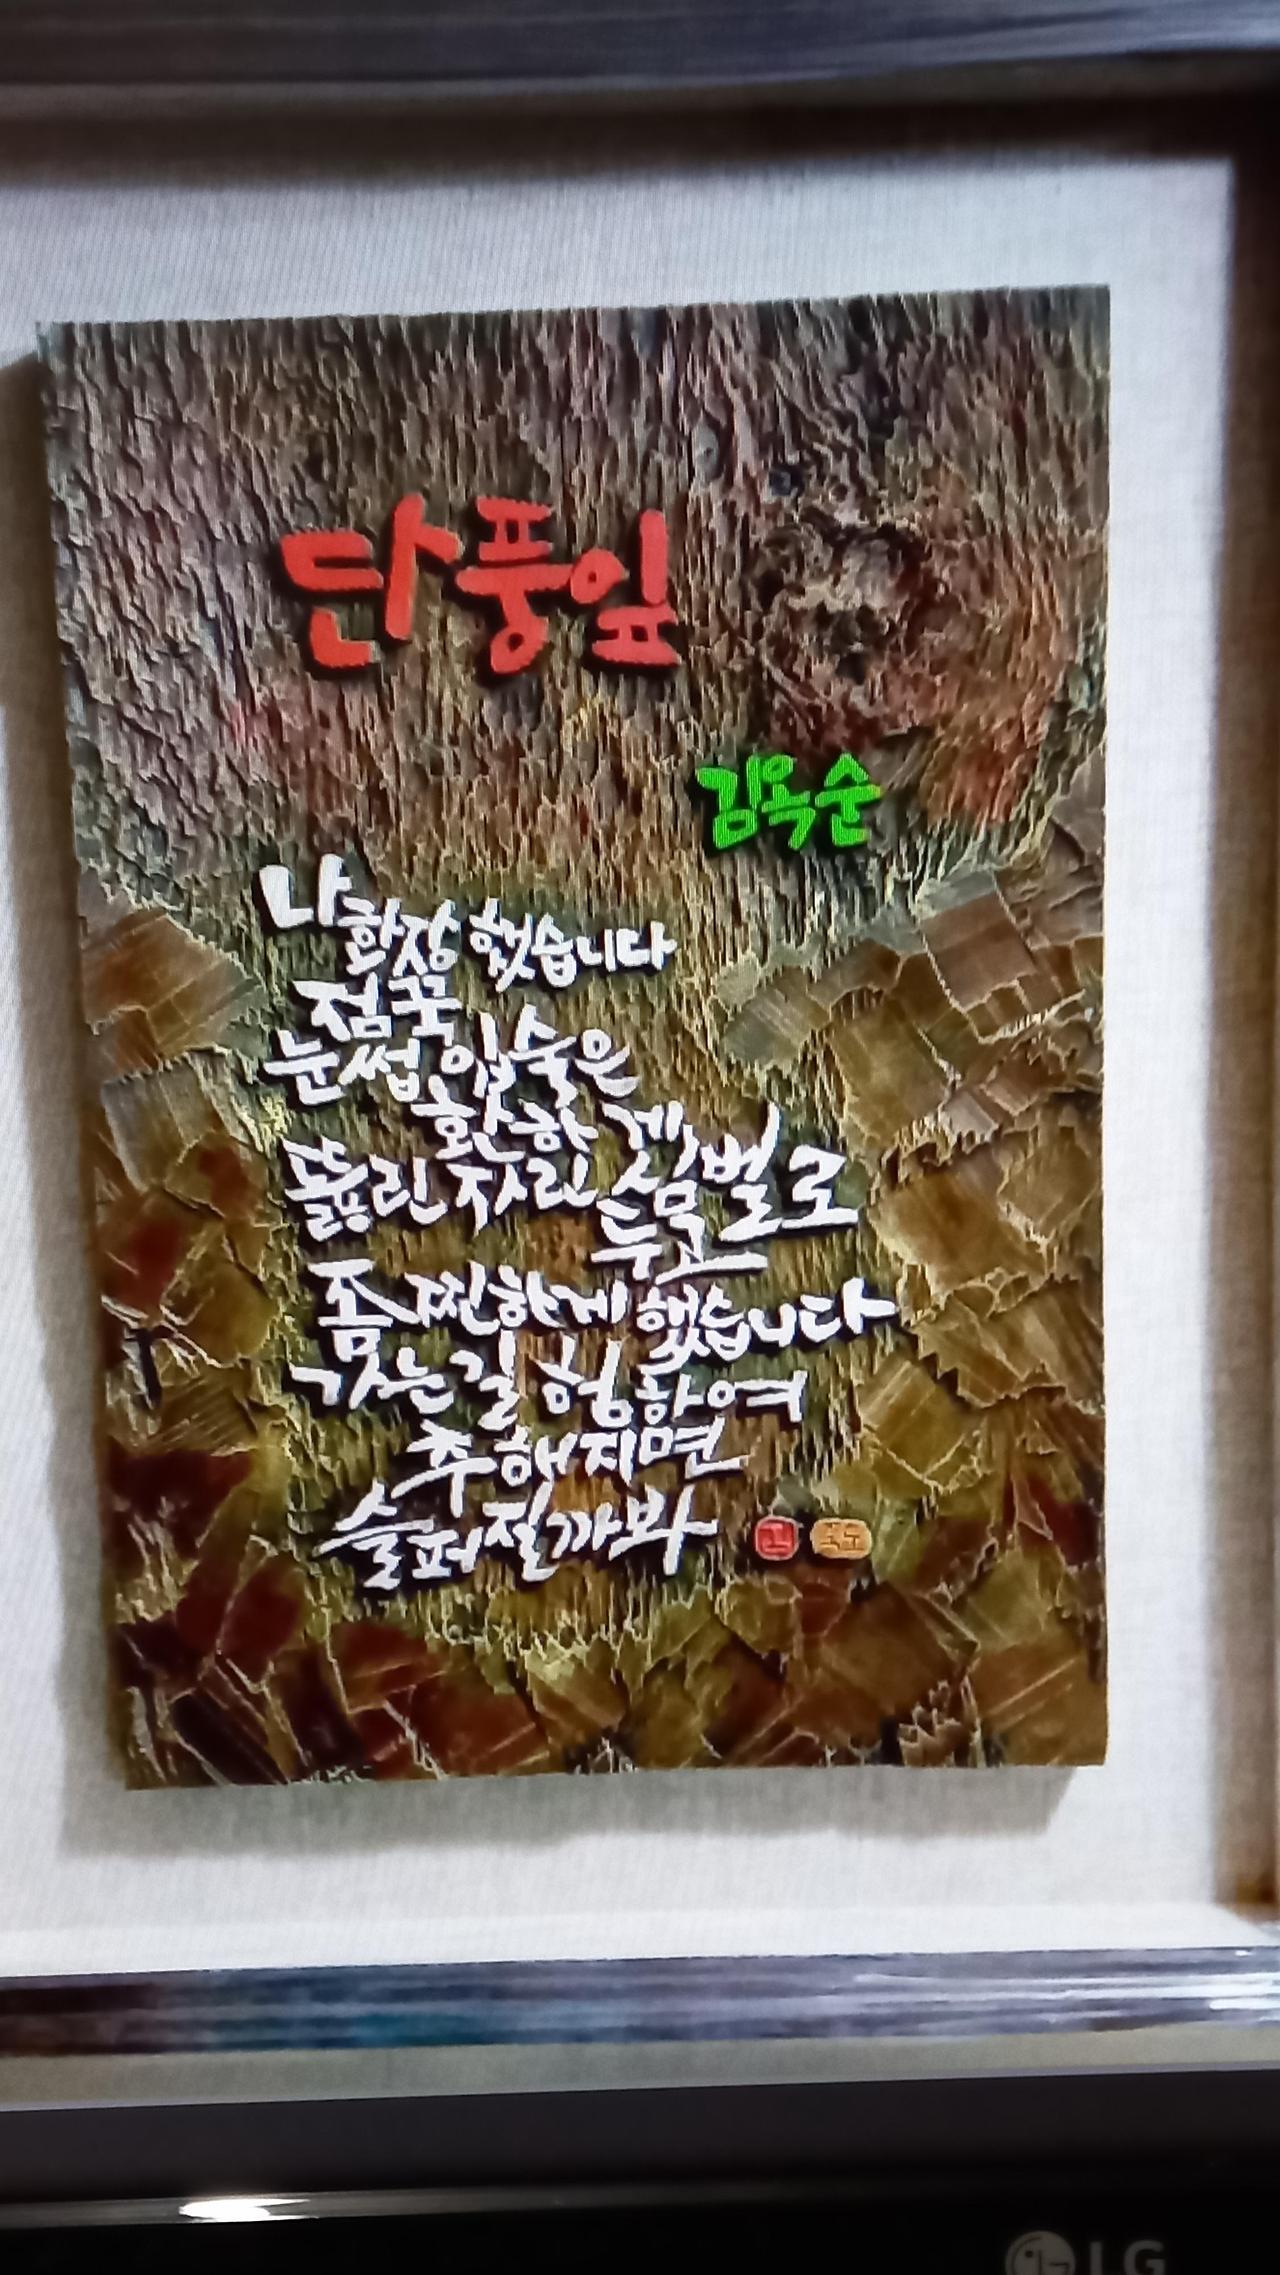 단풍잎
김옥순
나 화장 했습니다
점 꾹
눈썹 입술은
환하게
뚫린 자린 심벌로
두고
좀 찐하게 했습니다
가는 길 험하여
추해지면
슬퍼질까봐
LG